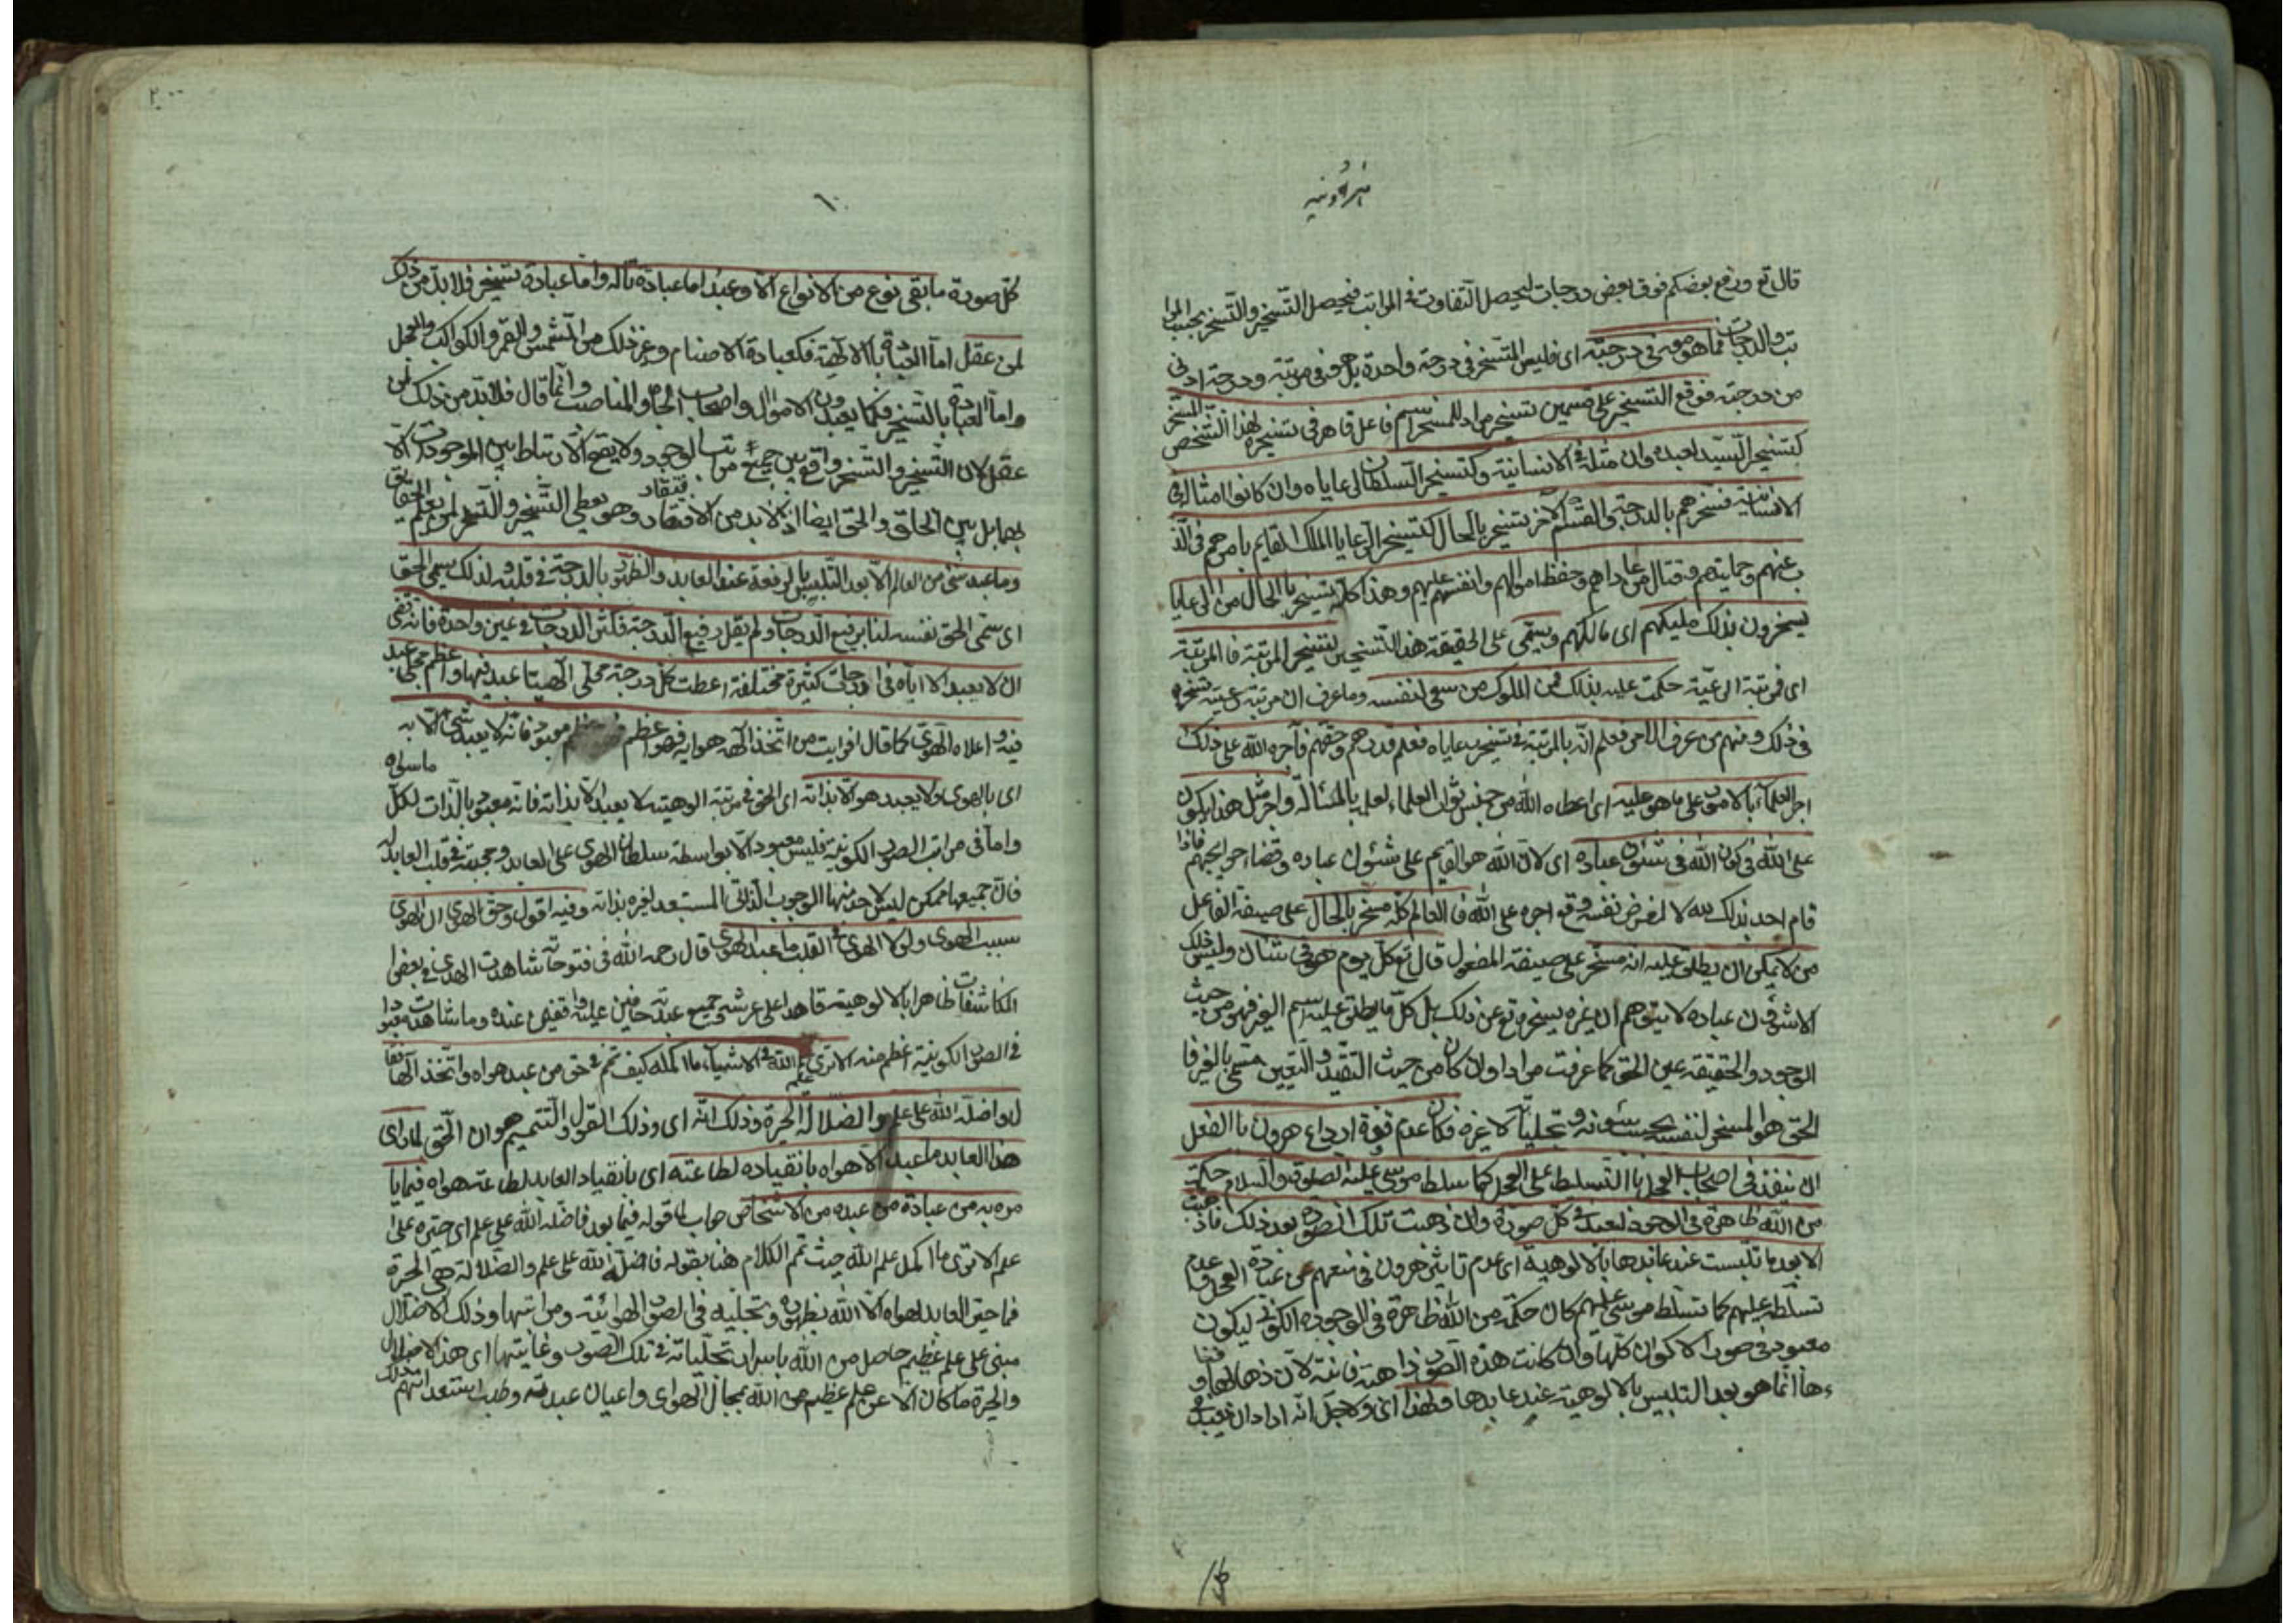 قال تع ورفع بعضكم فوق بعض درجات ليحصل التفاوت فى المراتب فيحصل التسخير والتسخر بحسب المرا
تب والدرجات فما هو معه فى درجته اى فليس المتسخر فى درجة واحدة بل هو فى مرتبة ودرجة ادنى
من درجته فوقع التسخير على قسمين تسخير مراد للمسخر اسم فاعل قاهر فى تسخيره لهذا الشخص المسخر
كتسخير السيد لعبده وان مثله فى الانسانية وكتسخير السلطان لرعاياه وان كانوا امثاله فى
الانسانية فسخرهم بالدرجة والقسم الآخر تسخير بالحال كتسخير الرعايا الملك القايم بامرهم فى الذ
ب عنهم وحمايتهم وقتال من عاداهم وحفظ اموالهم وانفسهم عليهم وهذا كله تسخير بالحال من الرعايا
يسخرون بذلك مليكهم اى مالكهم ويسمى على الحقيقة هذا التسخير تسخير المرتبة فالمرتبة
اى فمرتبة الرعية حكمت عليه بذلك فمن الملوك من سعى لنفسه وما عرف ان مرتبة رعيته تسخره
فى ذلك ومنهم من عرف الامر فعلم انه بالمرتبة فى تسخير رعاياه فعلم قدرهم وحقهم فآجره الله على ذلك
اجر العلماء بالامور على ما هو عليه اى اعطاه الله من جنس ثواب العلماء لعلمه بالمسألة واجر مثل هذا يكون
على الله فى كون الله فى شئون عباده اى لان الله هو القيم على شئون عباده وقضاء حوايجهم فاذا
قام احد بذلك لله لا لغرض نفسه وقع اجره على الله فالعالم كله مسخر بالحال على صيغة الفاعل
من لا يمكن ان يطلق عليه انه مسخر على صيغة المفعول قال تع كل يوم هو فى شان وليس ذلك
الا شؤون عباده لا يتوهم ان غيره يسخره تع عن ذلك بل كل ما يطلق عليه اسم الغير فهو من حيث
الوجود والحقيقة عين الحق كما عرفت مرارا وان كان من حيث التقيد والتعين مسمى بالغير فا
الحق هو المسخر لنفسه بحسب شئونه وتجلياته لا غيره فكان عدم قوة ارداع هرون بالفعل
ان ينفذ فى اصحاب العجل بالتسلط على العجل كما سلط موسى عليه الصلوة والسلام حكمة
من الله ظاهرة فى الوجود ليعبد فى كل صورة وان ذهبت تلك الصورة بعد ذلك فما ذهبت
الا بعد ما تلبست عند عابدها بالالوهية اى عدم تاثير هرون فى منعهم عن عبادة العجل وعدم
تسلطه عليهم كما تسلط موسى عليهم كان حكمة من الله ظاهرة فى الوجود الكونى ليكون
معبودا فى صور الاكوان كلها وان كانت هذه الصور ذاهبة فانية لان ذهابها وفنا
ءها انما هو بعد التلبس بالالوهية عند عابدها ولهذا اى ولاجل انه اراد ان يعبد فى
كل صورة ما بقى نوع من الانواع الا وعبد اما عبادة تاله واما عبادة تسخير فلا بد من ذلك
لمن عقل اما العبادة بالالهية فكعبادة الاصنام وغير ذلك من الشمس والقمر والكواكب والعجل
واما العبادة بالتسخير فكما يعبدون الاموال واصحاب الجاه والمناصب وانما قال فلا بد من ذلك لمن
عقل لان التسخير والتسخر واقع بين جميع مراتب الوجود ولا يقع الارتباط بين الموجودات الا
بهما بل بين الخلق والحق ايضا اذ لا بد من الافتقاد وهو يعطى التسخير والتسخر لمن يعلم الحقايق
وما عبد شئ من العالم الا بعد التلبيس بالرفعة عند العابد والظهور بالدرجة فى قلبه ولذلك سمى الحق
اى سمى الحق نفسه لنا برفيع الدرجات ولم يقل رفيع الدرجة فكثر الدرجات فى عين واحدة فانه قضى
ان لا يعبد الا اياه فى درجات كثيرة مختلفة اعطت كل درجة مجلى الهيا عبد فيها واعظم مجلى عبد
فيه واعلاه الهوى كما قال افرايت من اتخذ الهه هوايه فهو اعظم معبود فانه لا يعبد شئ الا به
اى بالهوى ولا يعبد هو الا بذاته اى الحق فى مرتبة الوهيته لا يعبد الا بذاته فانه معبود بالذات لكل ماسواه
واما فى مراتب الصور الكونية فليس معبود الا بواسطة سلطان الهوى على العابد ومحبته فى قلب العابد له
فان جميعها ممكن ليس لاحد منها الوجوب الذاتى المستعبد لغيره بذاته وفيه اقول وحق الهوى ان الهوى
سبب الهوى ولولا الهوى فى القلب ما عبد الهوى قال رحمه الله فى فتوحاته شاهدت الهوى فى بعض
المكاشفات ظاهرا بالالوهية قاعدا على عرشه وجميع عبدته حافين عليه واقفين عنده وما شاهدت معبودا
فى الصور الكونية اعظم منه الا ترى علم الله فى الاشياء ما اكمله كيف تمم فى حق من عبد هواه واتخذ الها فقا
ل واضله الله على علم والضلالة الحيرة وذلك انه اى وذلك القول والتتميم هو ان الحق لما راى
هذا العابد ما عبد الا هواه بانقياده لطاعته اى بانقياد العابد لطاعة هواه فيما يا
مره به من عبادة من عبده من الاشخاص جواب لما قوله فيما بعد فاضله الله على علم اى حيره على
علم الا ترى ما اكمل علم الله حيث تمم الكلام هنا بقوله فاضله الله على علم والضلالة هى الحيرة
فما حير العابد لهواه الا الله بظهوره وتجليه فى الصور الهوائية ومراتبها وذلك الاضلال
مبنى على علم عظيم حاصل من الله باسرار تجلياته فى تلك الصور وغايتها اى هذا الاضلال
والحيرة ما كان الا عن علم عظيم من الله بمجال الهواى واعيان عبدته وطلب استعداداتهم ذلك